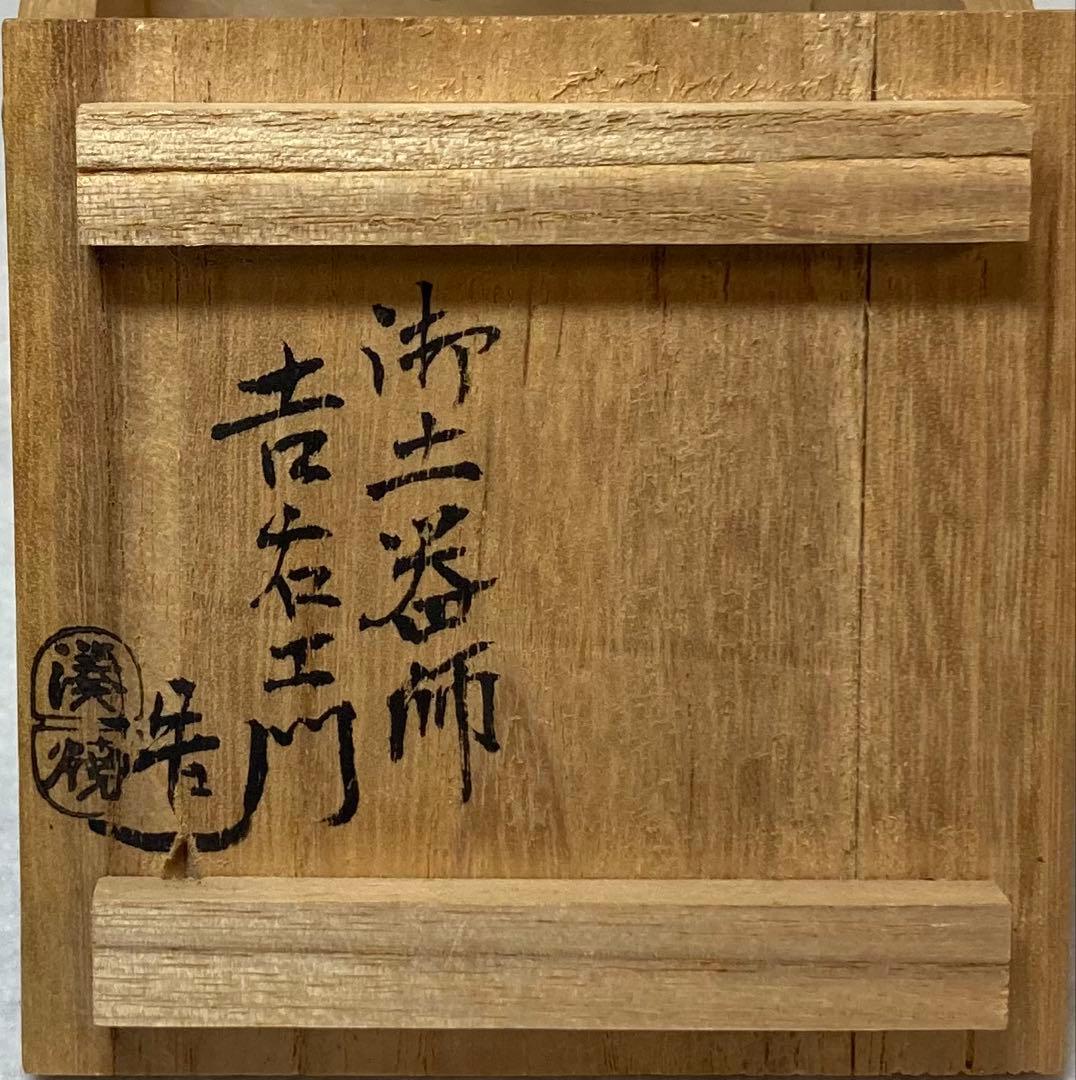 御土器師
吉右エ門
造
湊焼